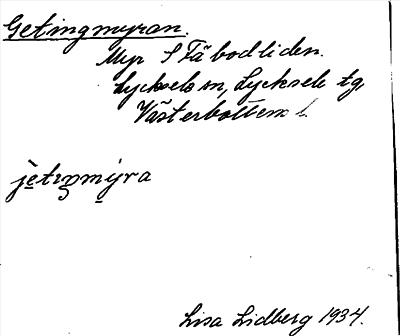 Getingmyran.
Myr S Fäbodliden.
Lycksele sn, Lycksele tg
Västerbottens l.
Lisa Lidberg 1934.